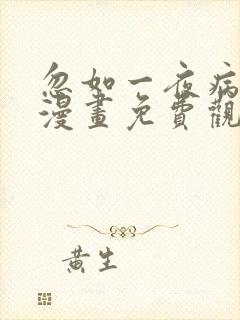 忽如一夜病
漫畫免費觀
黃生